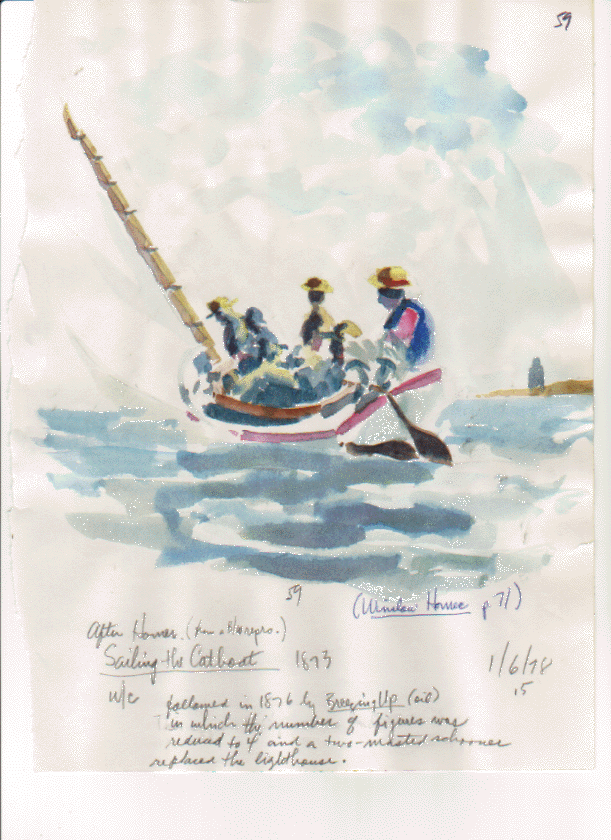 59
59
(Winslow Homer p 71)
After Homer. (
Sailing the Catboat 1873
1/6/78
15
w/c followed in 1876 by Breezing Up (oil)
in which the number of figures was
reduced to 4 and a two-masted schooner
replaced the lighthouse.